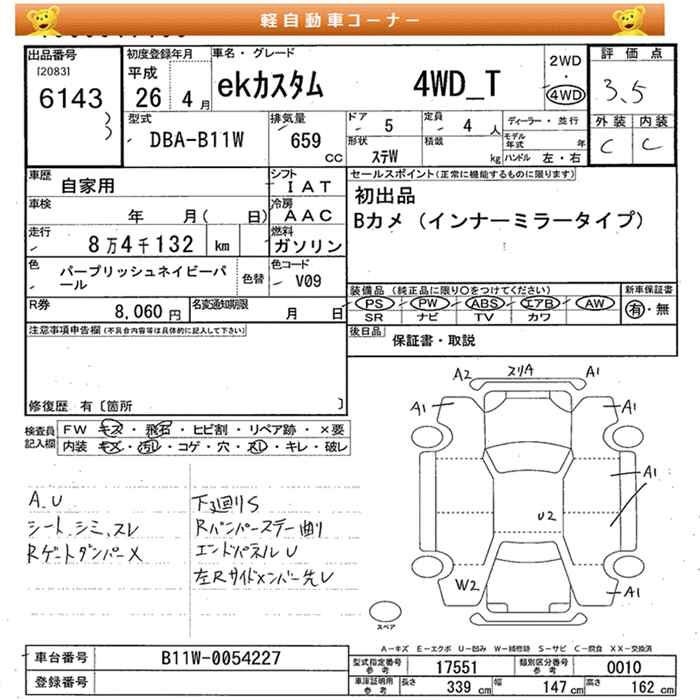 軽自動車コーナー
出品番号 初度登録年月 車名・グレード 2WD 評価点
[2083] 平成 ekカスタム 4WD_T ・ 3.5
6143 26 年 4 月 4WD
型式 排気量 ドア 5 定員 4 人 ディーラー・並行 外装 内装
DBA-B11W 659 cc 形状 ステW 積載 kg モデル年式 年 C C
ハンドル 左・右
車歴 自家用 シフト IAT セールスポイント(正常に機能するものに限ります)
車検 年 月( 日) 冷房 AAC 初出品
走行 8万4千132 km 燃料 ガソリン Bカメ(インナーミラータイプ)
色 パープリッシュネイビーパール 色替 色コード V09
装備品 (純正品に限り○をつけてください) 新車保証書
PS PW ABS エアB AW 有・無
R券 8,060円 名変通知期限 月 日 SR ナビ TV カワ
注意事項申告欄(不具合内容等は具体的に記入して下さい) 後日品 保証書・取説
修復歴 有〔箇所 〕
検査員記入欄 FW キズ・飛石・ヒビ割・リペア跡・×要
内装 キズ・汚レ・コゲ・穴・スレ・キレ・破レ
A2 スリA A1
A1 A1
A1
U2
W2 A1
A.U 下廻りS
シート、シミ、スレ Rバンパーステー曲り
RゲートダンパーX エンドパネルU
左Rサイドメンバー先U
スペア
A-キズ E-エクボ U-凹み W-補修跡 S-サビ C-腐食 XX-交換済
車台番号 B11W-0054227 型式指定番号 参考 17551 類別区分番号 参考 0010
登録番号 車庫証明用 参考 長さ 339 cm 幅 147 cm 高さ 162 cm